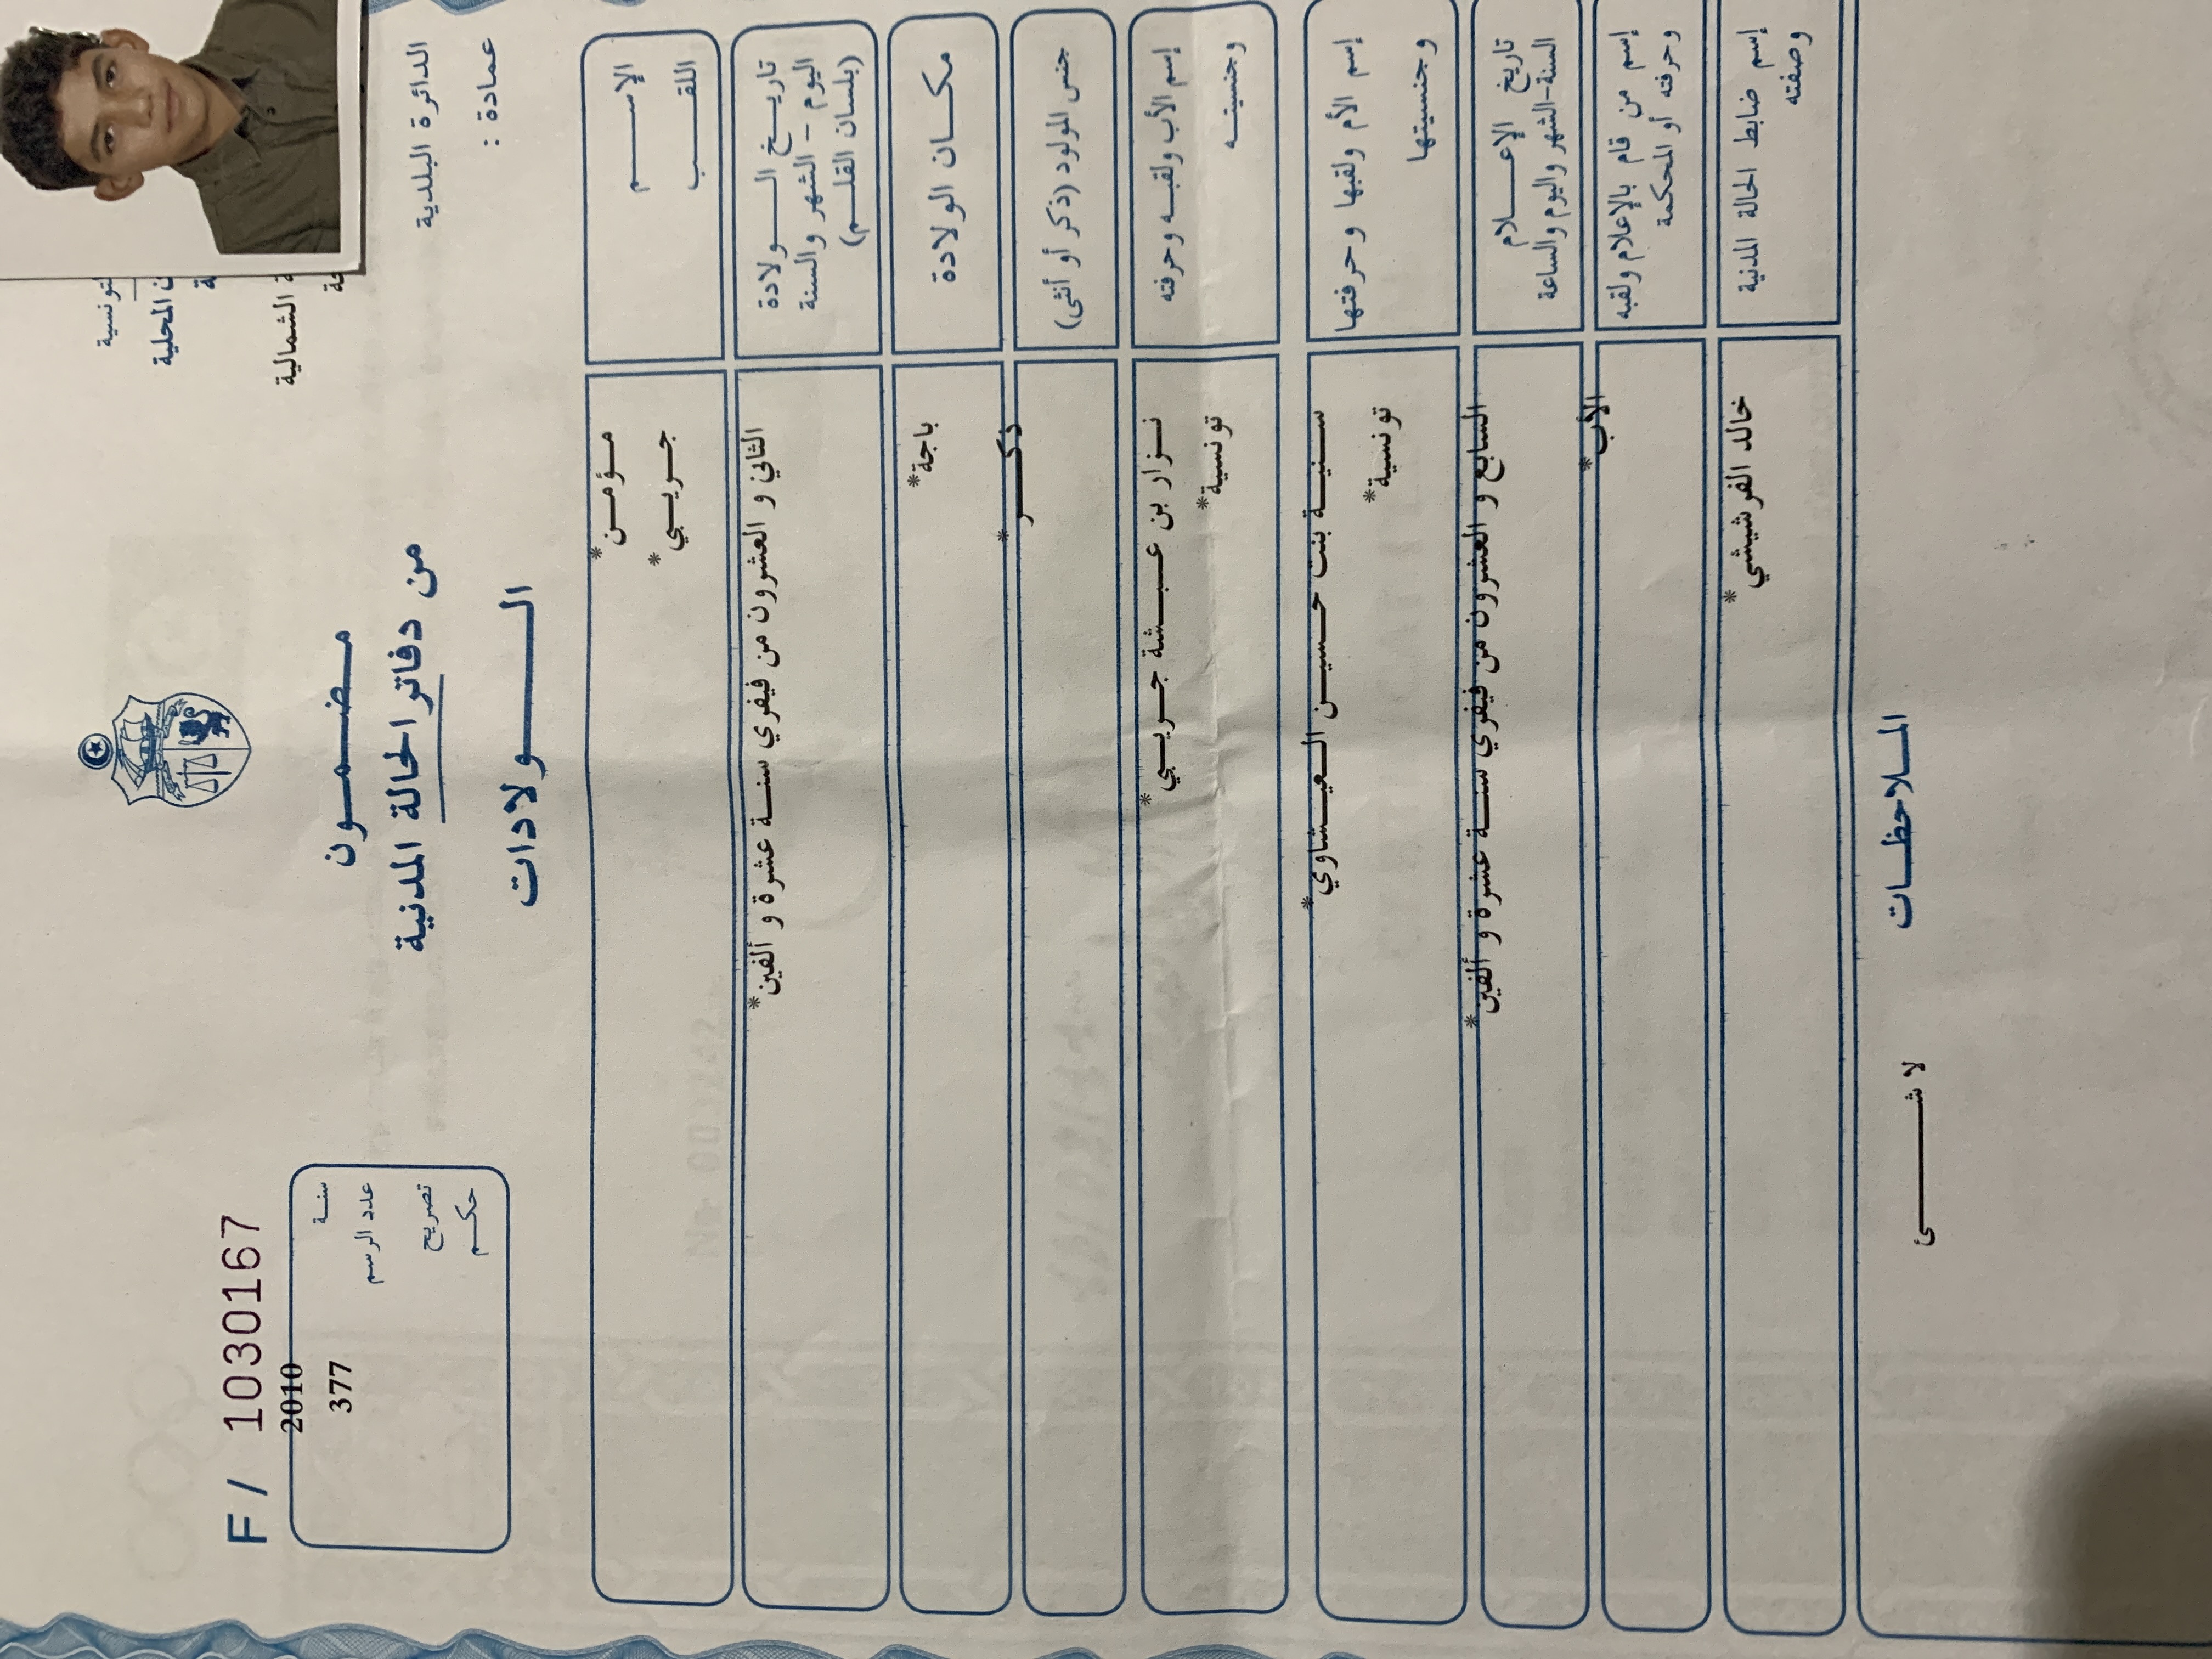 الدائرة البلدية
عمادة :
مضمون
من دفاتر الحالة المدنية
الولادات
F / 1030167
سنة 2010
عدد الرسم 377
تصريح
حكم
الإسم مؤمن*
اللقب جريبي*
تاريخ الولادة
اليوم – الشهر والسنة
(بلسان القلم)
الثاني و العشرون من فيفري سنة عشرة و ألفين*
مكان الولادة باجة*
جنس المولود (ذكر أو أنثى) ذكر*
إسم الأب ولقبه وحرفته نزار بن عبشة جريبي*
وجنسيته تونسية*
إسم الأم ولقبها وحرفتها سنية بنت حسين العيشاوي*
وجنسيتها تونسية*
تاريخ الإعلام
السنة-الشهر واليوم والساعة
السابع و العشرون من فيفري سنة عشرة و ألفين*
إسم من قام بالإعلام ولقبه
وحرفته أو المحكمة
الأب*
إسم ضابط الحالة المدنية
وصفته
خالد الفرشيشي*
الملاحظات
لا شئ